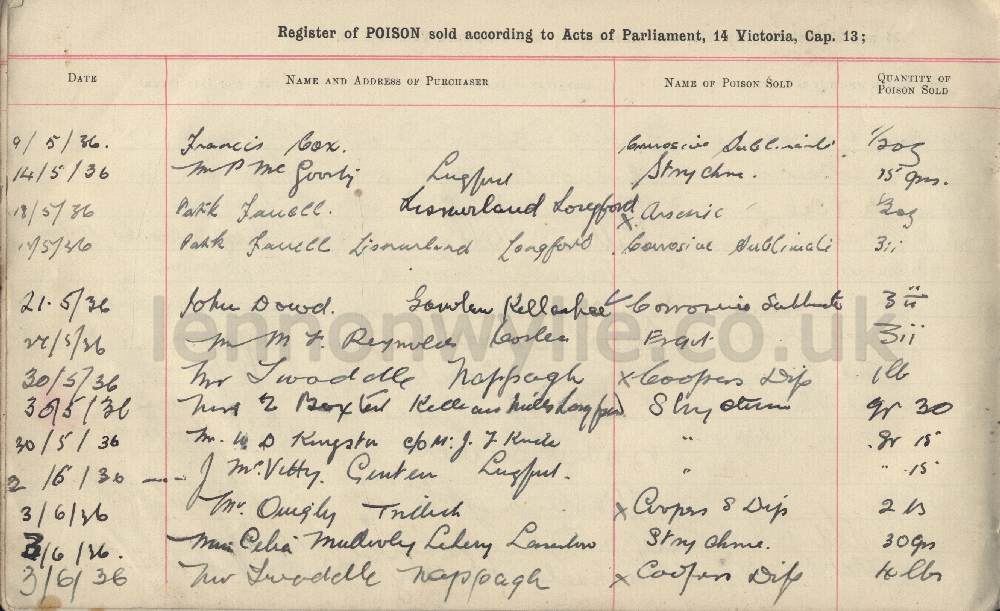 Register of POISON sold according to Acts of Parliament, 14 Victoria, Cap. 13;
DATE NAME AND ADDRESS OF PURCHASER NAME OF POISON SOLD QUANTITY OF POISON SOLD
9/5/36. Francis Cox. Corrosive Sublimate. 1/2oz
14/5/36 Strychnine. 15 grns.
18/5/36 Patk Farrell. Lismurland Longford x Arsenic
/5/36 Patk Farrell Lismurland Longford Corrosive Sublimate 3ii
21.5/36 John Dowd. Corrosive Sublimate 3ii
/5/36 Reynolds Corlea Ergot 3ii
30/5/36 Mr Twaddle Nappagh x Coopers Dip 1lb
30/5/36 Mrs Boxter Strychnine gr 30
30/5/36 Mr. W D Kingston c/o Mr. J. F " gr 15
2/6/36 J McVitty. " " 15
3/6/36 Mr. Quigly x Coopers Dip 2 lb
3/6/36. Miss Celia Strychnine. 30grs
3/6/36 Mr Twaddle Nappagh x Coopers Dip lbs
lennonwylie.co.uk